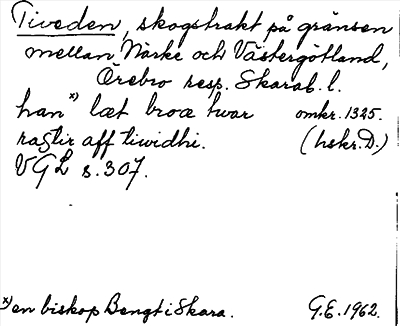 Tiveden, skogstrakt på gränsen
mellan Närke och Västergötland,
Örebro resp. Skarab. l.
han x) læt broæ twar omkr. 1325.
rastir aff tiwidhi. (hskr. D.)
VGL s. 307.
x) en biskop Bengt i Skara. G.E. 1962.